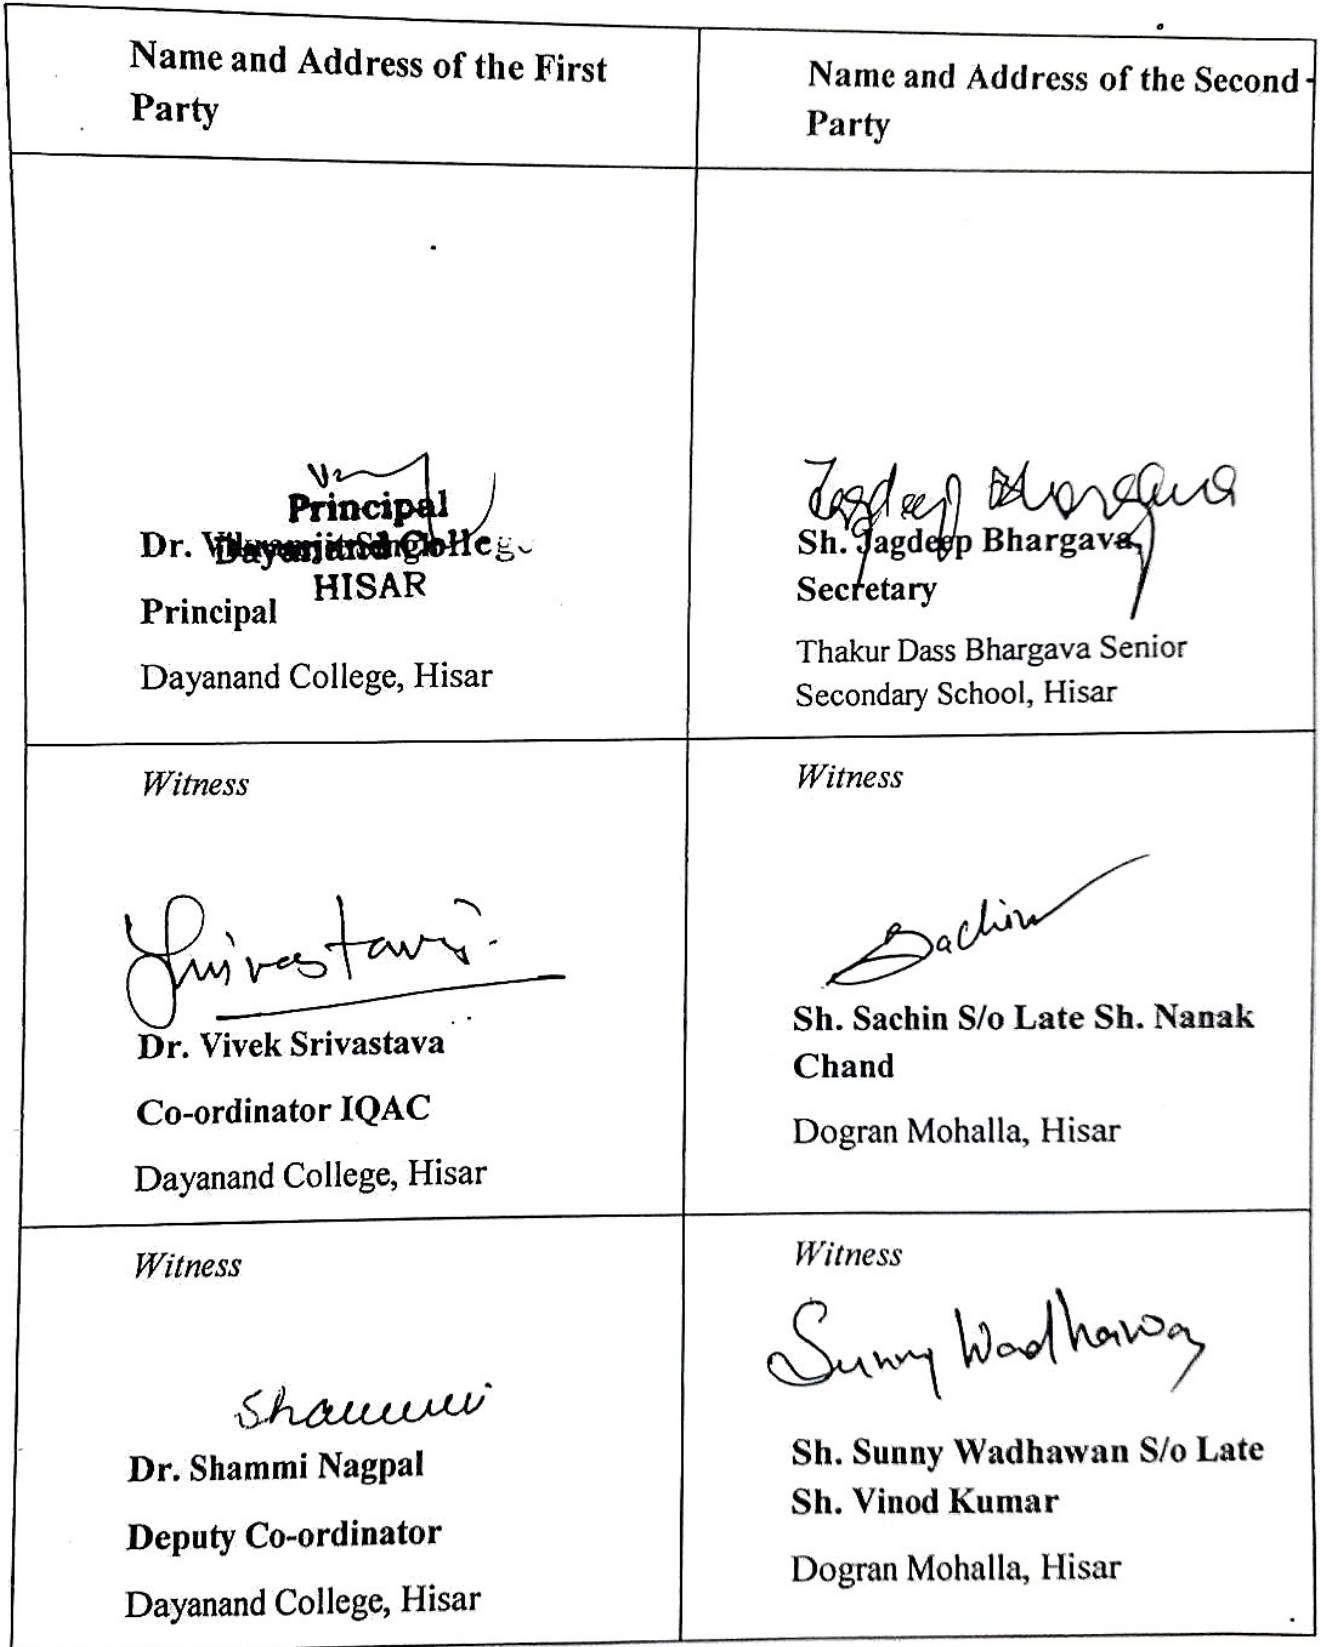 Name and Address of the First
Party
Name and Address of the Second
Party
Principal
Dr.
Dayanand College
HISAR
Principal
Dayanand College, Hisar
Jagdeep Bhargava
Sh. Jagdeep Bhargava,
Secretary
Thakur Dass Bhargava Senior
Secondary School, Hisar
Witness
Srivastava
Dr. Vivek Srivastava
Co-ordinator IQAC
Dayanand College, Hisar
Witness
Sachin
Sh. Sachin S/o Late Sh. Nanak
Chand
Dogran Mohalla, Hisar
Witness
Shammi
Dr. Shammi Nagpal
Deputy Co-ordinator
Dayanand College, Hisar
Witness
Sunny Wadhawan
Sh. Sunny Wadhawan S/o Late
Sh. Vinod Kumar
Dogran Mohalla, Hisar